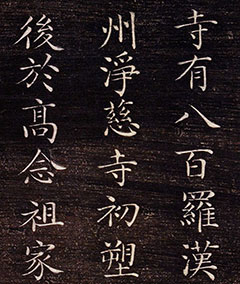 寺有八百羅漢
州淨慈寺初塑
後於髙念祖家